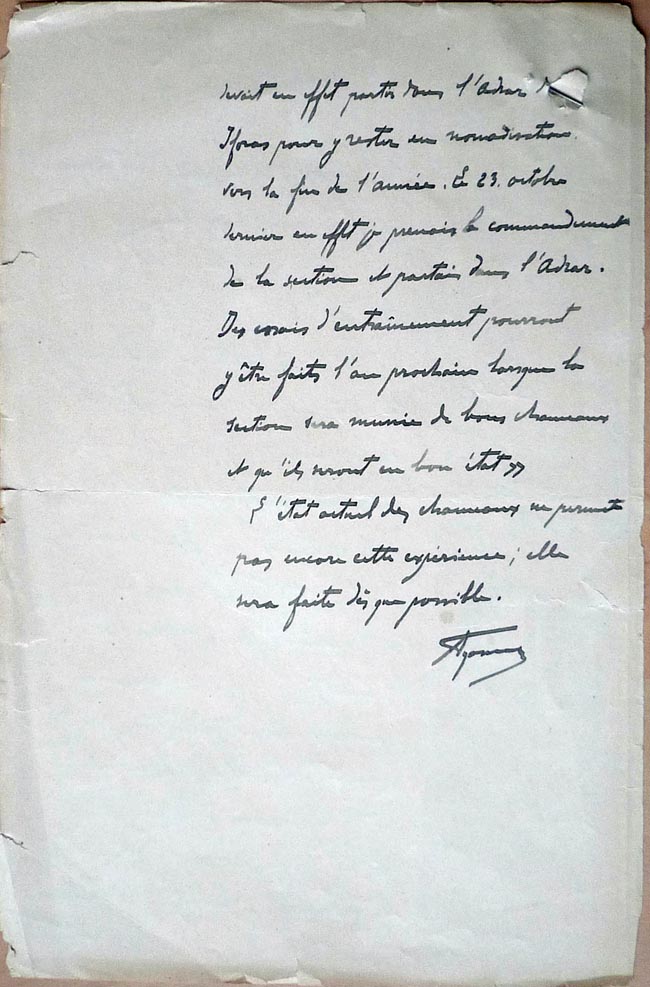 devait en effet partir dans l'Adrar d
Iforas pour y rester en nomadisation
vers la fin de l'année. Le 23 octobre
dernier en effet je prenais le commandement
de la section et partais dans l'Adrar.
Des essais d'entraînement pourront
y être faits l'an prochain lorsque la
section sera munie de bons chameaux
et qu'ils seront en bon état »
L'état actuel des chameaux ne permet
pas encore cette expérience ; elle
sera faite dès que possible.